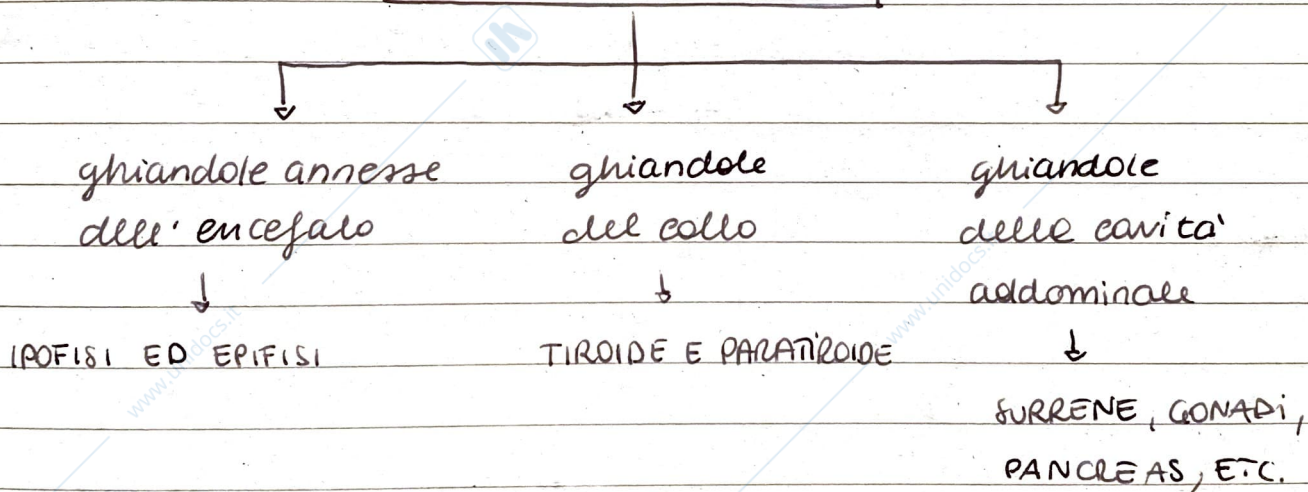 ghiandole annesse
dell' encefalo
IPOFISI ED EPIFISI
ghiandole
del collo
TIROIDE E PARATIROIDE
ghiandole
delle cavita'
addominale
SURRENE, GONADI,
PANCREAS, ETC.
www.unidocs.it
www.unidocs.it